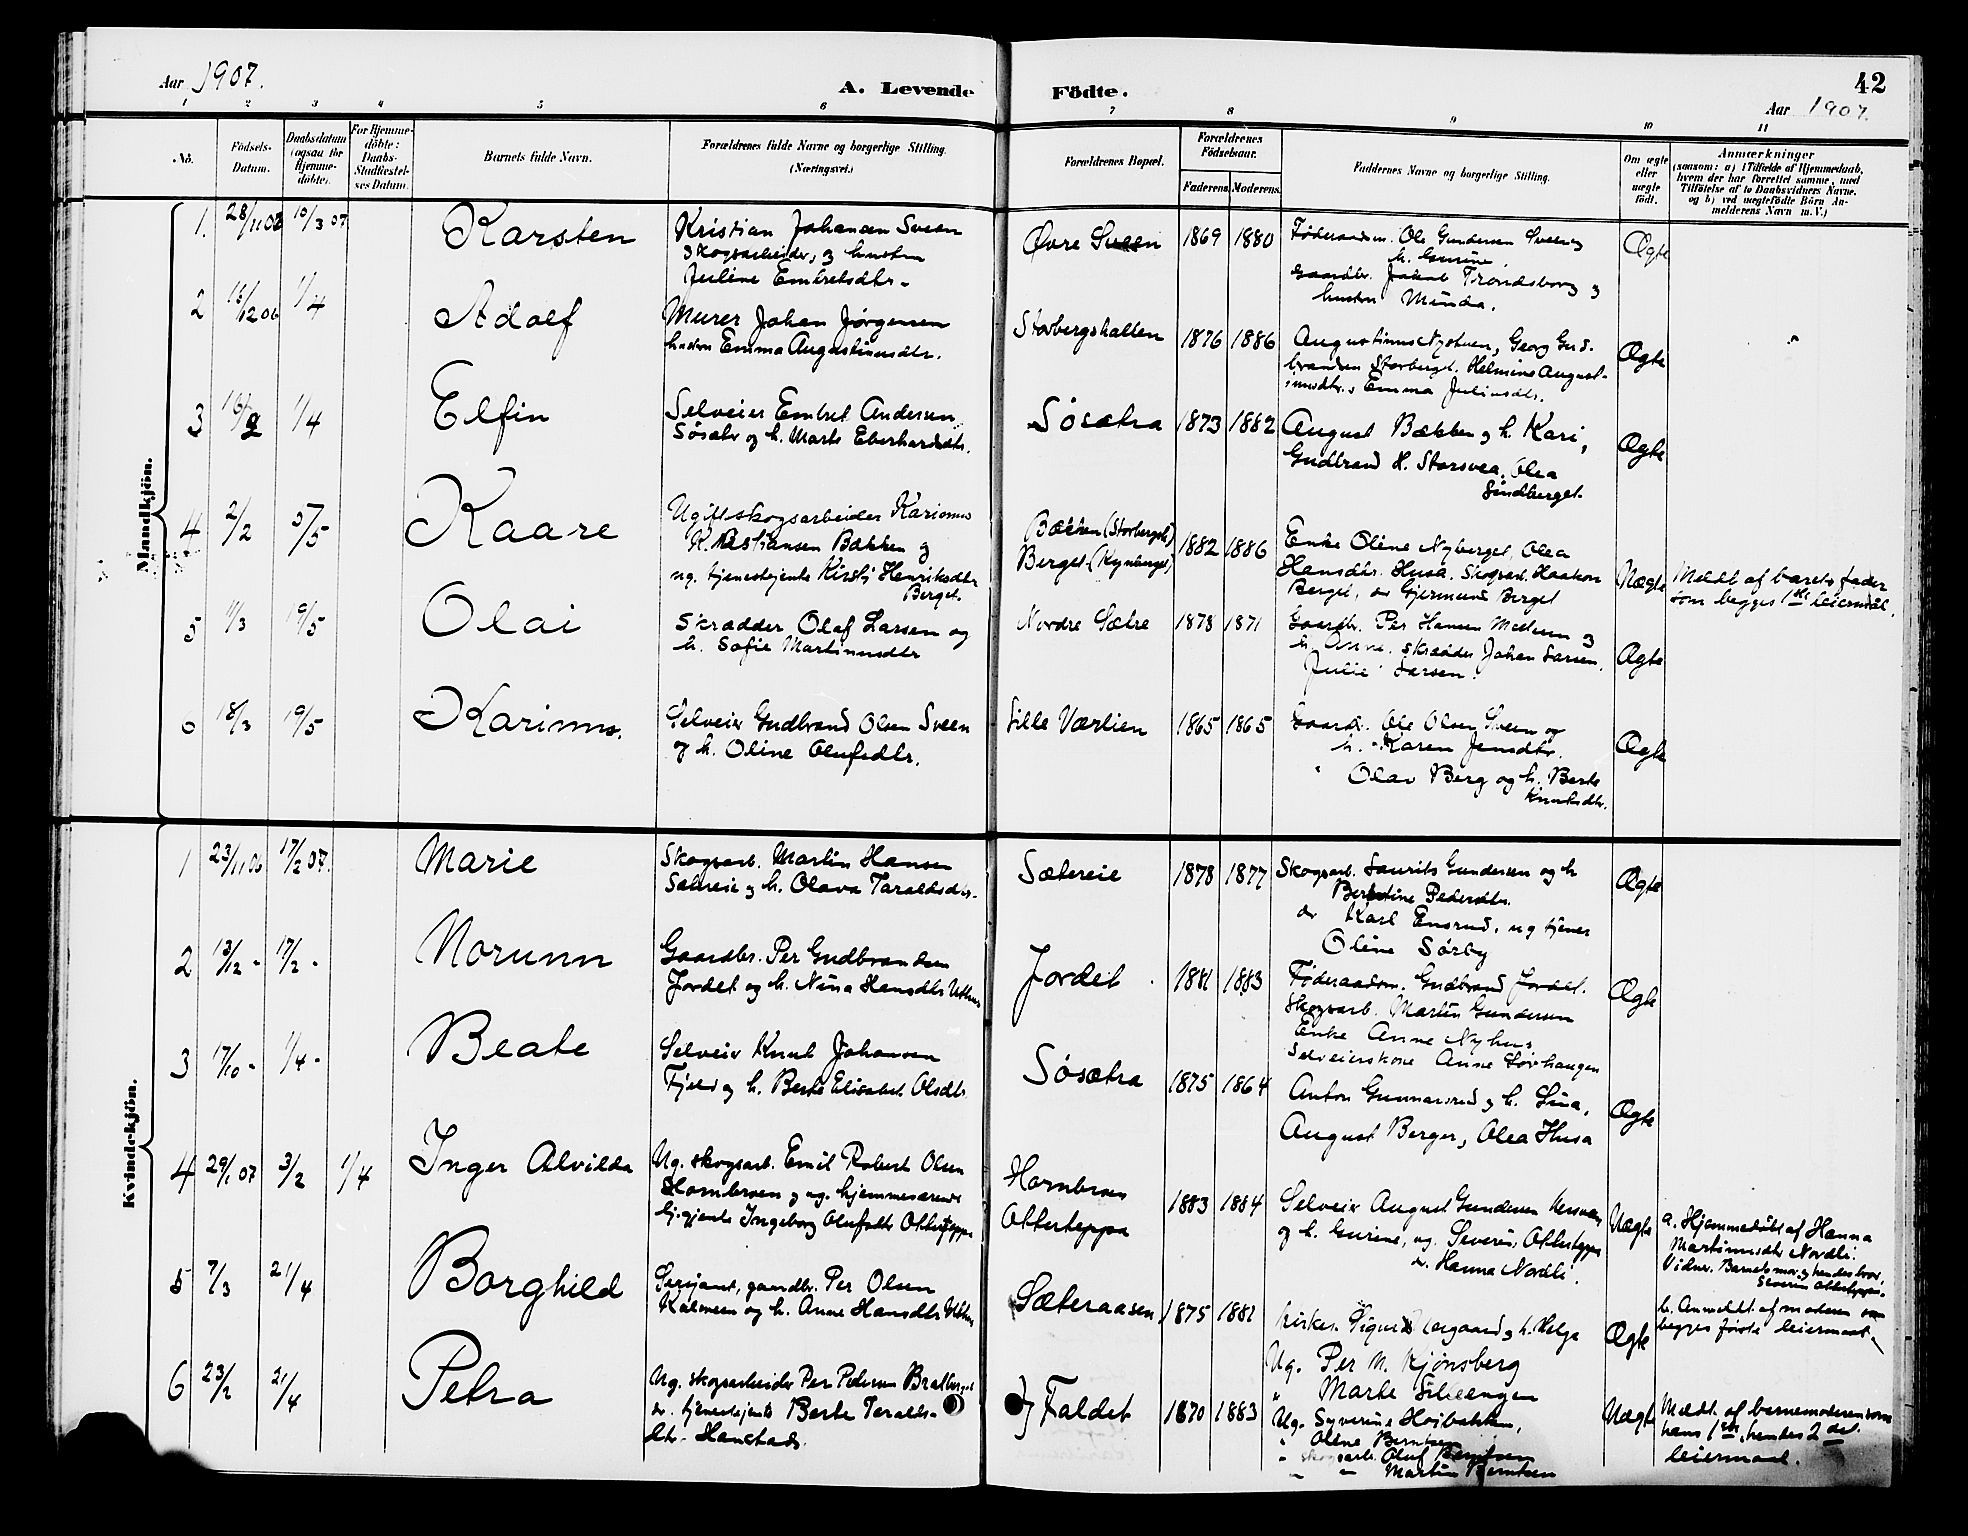 Aar 1907.
A. Levende Födte.
42
Aar 1907.
1 2 3 4 5 6 7 8 9 10 11
No.
Födsels-Datum.
Daabsdatum (ogsaa for Hjemme-döbte).
For Hjemme-döbte: Daabs-Stadfæstel-ses Datum.
Barnets fulde Navn.
Forældrenes fulde Navne og borgerlige Stilling. (Næringsvei.)
Forældrenes Bopæl.
Forældrenes Födselsaar.
Faderens. Moderens.
Faddernes Navne og borgerlige Stilling.
Om ægte eller uægte födt.
Anmærkninger
(saasom: a) i Tilfælde af Hjemmedaab,
hvem der har forrettet samme, med
Tilföielse af to Daabsvidners Navne.
og b) ved uægtefödte Börn An-
melderens Navn m. V.)
Mandkjön.
1. 28/11 06 10/3 07 Karsten
Kristian Johansen Sveen
skogsarbeider, og hustru
Juline Embretsdtr.
Øvre Sveen 1869 1880
Føderaadsm. Ole Gundersen Sveen og
h. Gurine.
Gaardbr. Jakob Trondsborg og
hustru Minda.
Ægte
2 15/12 06 1/4 Adolf
Murer Johan Jørgensen
hustru Emma Augustinusdtr.
Storbergshallen 1876 1886
Augustinus Nystuen, Georg Gud-
brandsen Storberget. Helmine August-
inusdtr., Emma Juliusdtr.
Ægte
3 16/9 1/4 Elfin
Selveier Embret Andersen
Søsætr og h. Marte Eberhardsdtr.
Søsætra 1873 1882
August Bækken og h. Kari,
Gudbrand H. Storsvea, Olea
Lindberget.
Ægte
4 2/2 5/5 Kaare
Ugift skogsarbeider Karinus
Kristiansen Bækken og
ug. tjenestejente Kirsti Henriksdtr
Berget.
Bækken (Storberget)
Berget (Kynberget)
1882 1886
Enke Oline Nyberget, Olea
Hansdtr. Husa. Skogsarb. Haakon
Berget, do Gjermund Berget
Uægte
Meldt af barnets fader
som begges 1ste leiermål.
5 11/3 19/5 Olai
Skrædder Olaf Larsen og
h. Sofie Martinusdtr
Nordre Sætre 1878 1871
Gaardbr. Per Hansen Mellem og
h. Anne. skrædder Johan Larsen,
Julie Larsen.
Ægte
6 18/3 19/5 Karinus.
Selveier Gudbrand Olsen Sveen
og h. Oline Olufsdtr.
Lille Værlien 1865 1865
Gaardbr. Ole Olsen Sveen og
h. Karen Jensdtr.
" Olav Berg og h. Berte
Knutsdtr.
Ægte
Kvindekjön.
1 23/11 06 17/2 07. Marie
Skogsarb. Martin Hansen
Sætreeie og h. Olava Taraldsdtr.
Sætereie 1878 1877
Skogsarb. Laurits Gundersen og h
Berntine Pedersdtr.
do Karl Ensrud, ug tjener
Oline Sørby
Ægte
2 13/12 - 17/2 - Norunn
Gaardbr. Per Gudbrandsen
Jordet og h. Nina Hansdtr Uthus
Jordet 1881 1883
Føderaadsm. Gudbrand Jordet.
Skogsarb. Martin Gundersen
Enke Anne Nyhus
Selveierskone Anne Lørhaugen
Ægte
3 17/10 - 1/4 - Beate
Selveier Knut Johansen
Fjeld og h. Berte Elisabet Olsdtr.
Søsætra 1875 1864
Anton Gunnarsrud og h. Lina,
August Berger, Olea Husa
Ægte
4 29/1 07 3/2 1/4 Inger Alvilda
Ug. skogsarb. Emil Robert Olsen
Hornbroen og ug. hjemmeværende
tj.gjente Ingeborg Olufsdtr Otterteppe
Hornbroen
Otterteppa
1883 1884
Selveier August Gundersen
og h. Gurine, ug. Severin Otterteppe
do. Hanna Nordli.
Uægte
a. Hjemmedøbt af Hanna
Martinusdtr Nordli.
Vidner. Barnets mor og hendes bror,
Severin Otterteppe.
b. Anmeldt af moderen som
begges første leiermaal.
5 7/3 21/4 Borghild
Serjant, gaardbr. Per Olsen
og h. Anne Hansdtr Uthus
Sæteraasen 1875 1881
Kirkes. Sigurd og h. Helga
Ug. Per M. Kjønsberg
" Marte Lilleengen
Ægte
6 23/2 21/4 Petra
Ug. skogsarbeider Per Pedersen Bratberget
do. tjenestejente Berte Taralds-
dtr. Hanstad.
Faldet 1870 1883
Ug. Syverine Høibakken,
" Oline Berntsen
" skogsarb. Oluf Berntsen
" " Martin Berntsen
Uægte
Meldt af barnemoderen som
hans 1ste, hendes 2det
leiermaal.